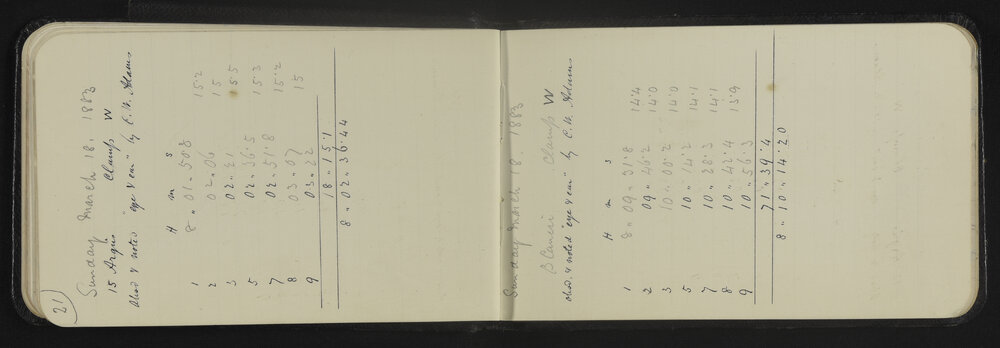 21
Sunday March 18. 1883
15 Argus Clamp W
Obsd. & noted "eye & ear" by C.W. Adams
H m s
1 8 " 01 . 50.8 15.2
2 02 . 06 15
3 02 " 21 15.5
5 02 " 36.5 15.3
7 02 " 51.8 15.2
8 03 " 07 15
9 03 " 22
18 " 15.1
8 " 02 " 36.44
Sunday March 18. 1883
β Cancri Clamp W
Obsd. & noted "eye & ear" by C.W. Adams
H m s
1 8 " 09 " 31.8 14.4
2 09 " 46.2 14.0
3 10 " 00.2 14.0
5 10 " 14.2 14.1
7 10 " 28.3 14.1
8 10 " 42.4 13.9
9 10 " 56.3
71 " 39.4
8 " 10 " 14.20